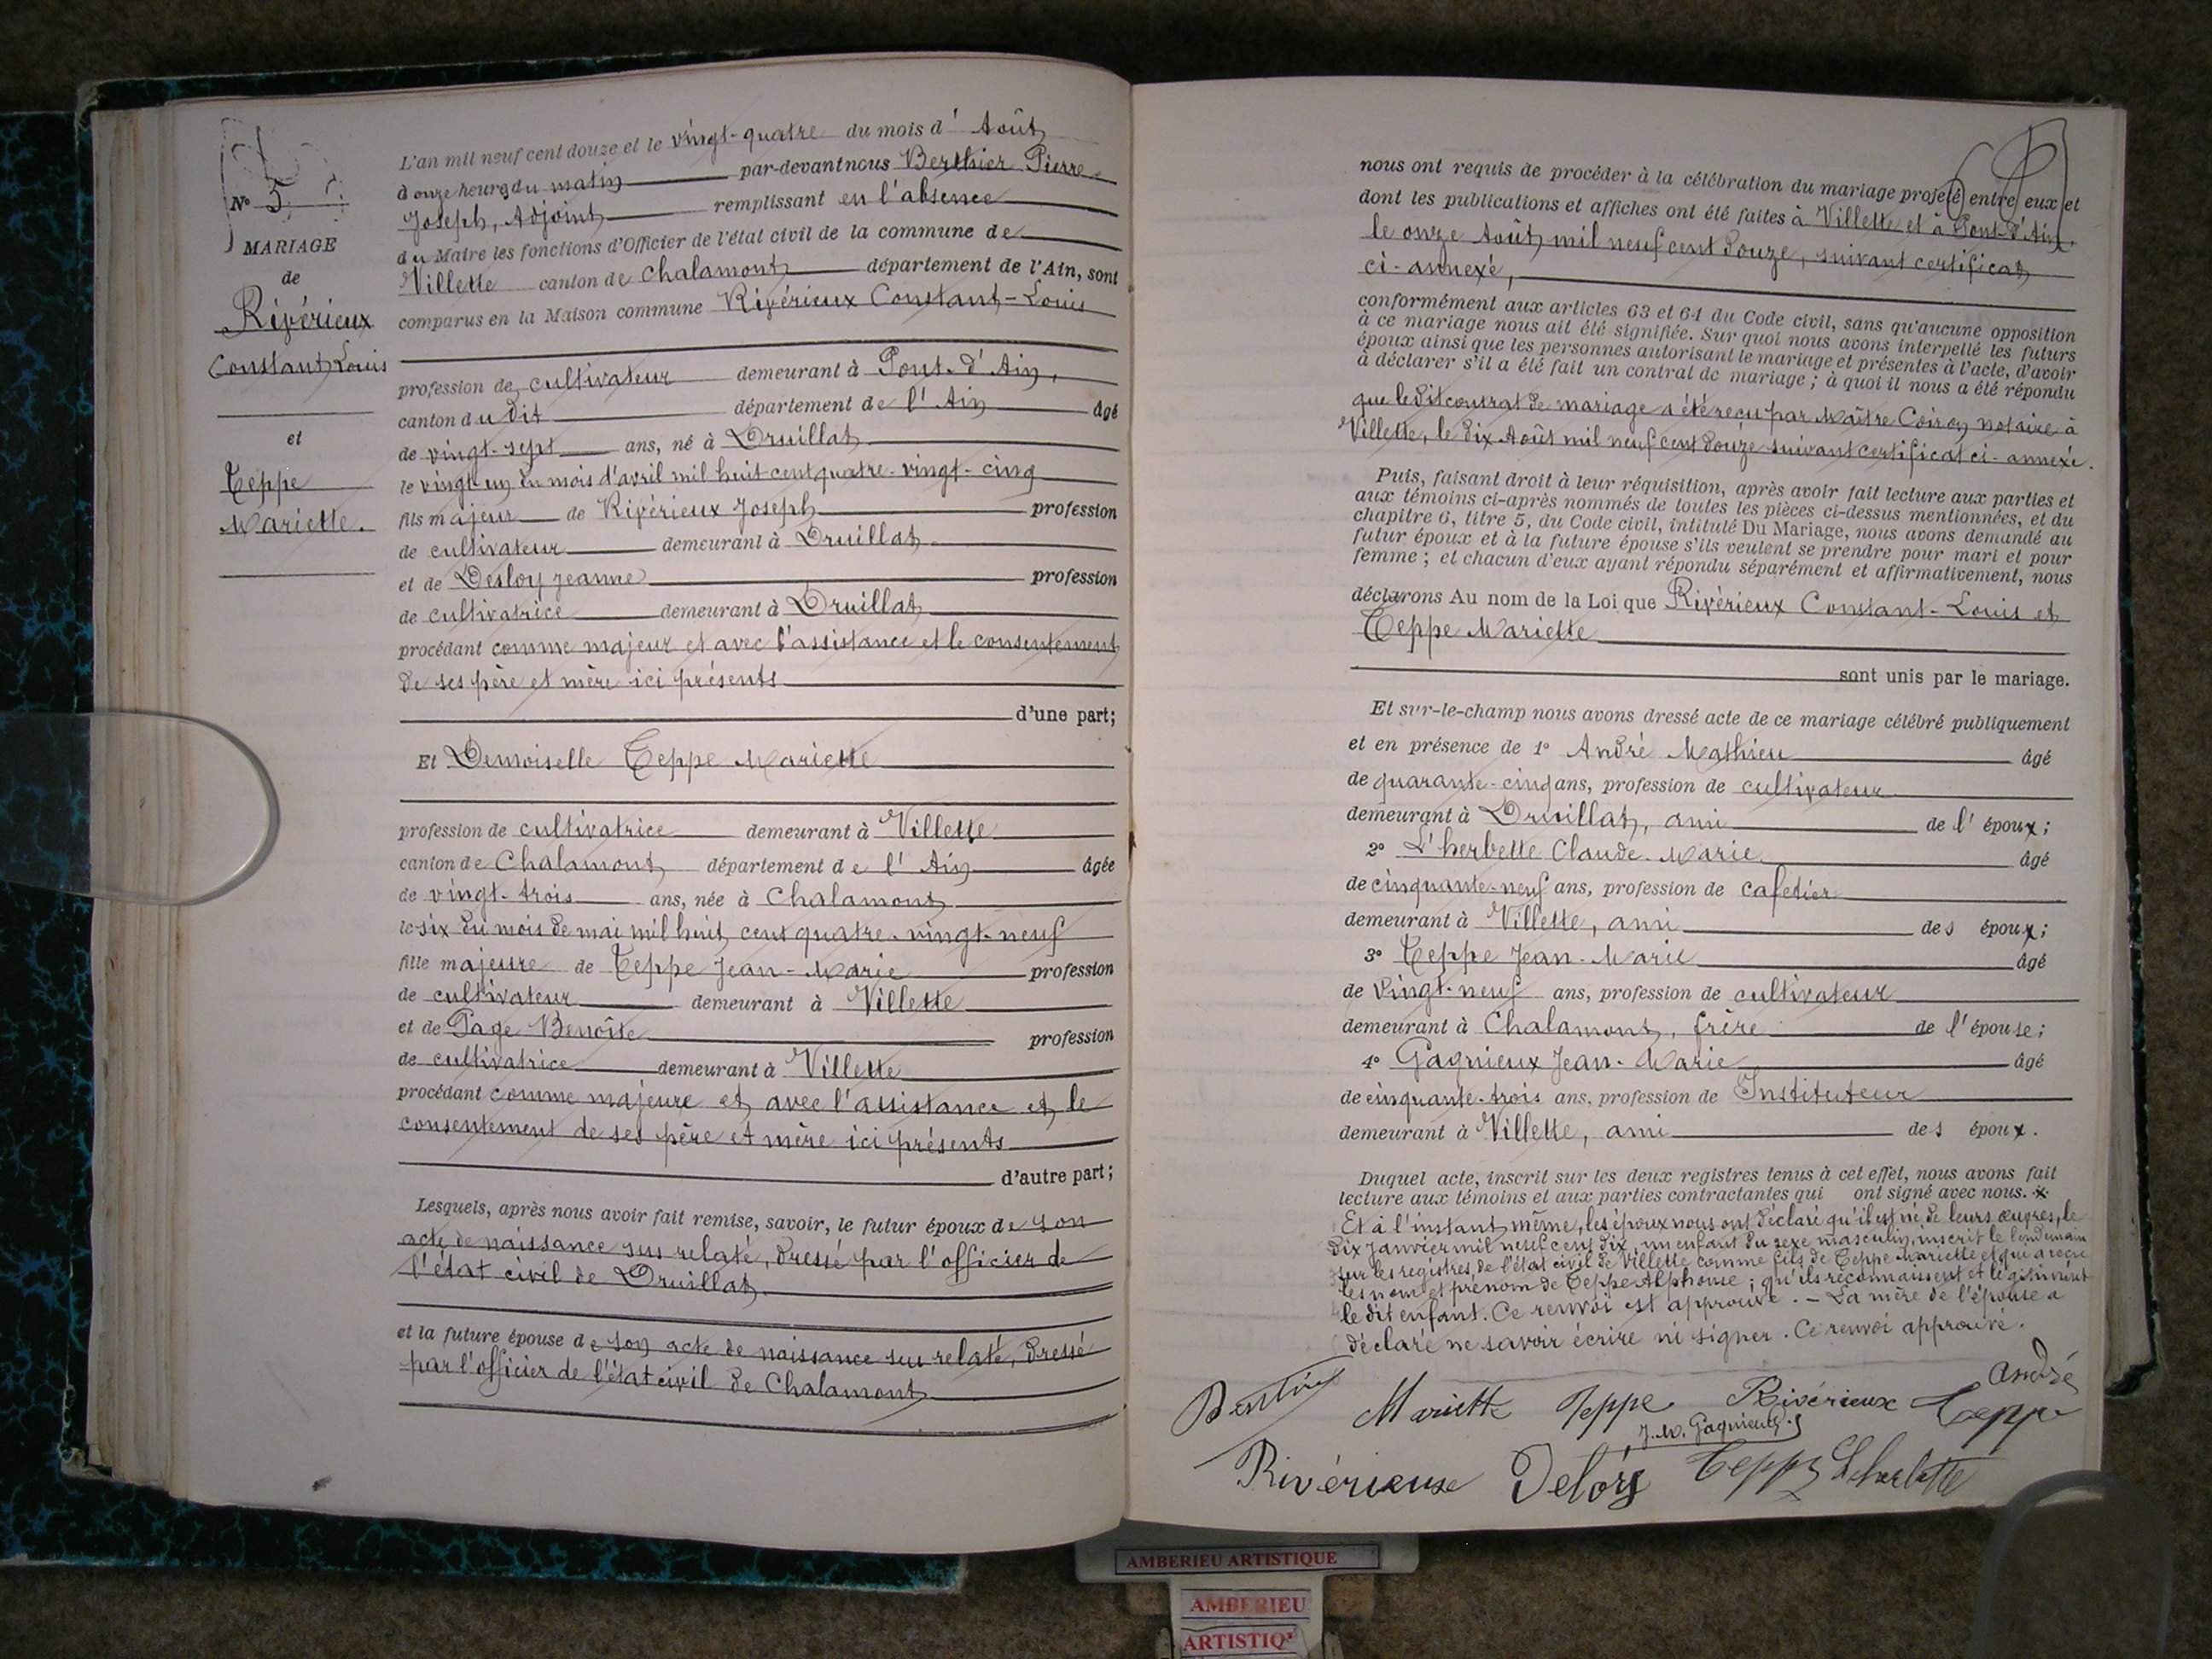 L'an mil neuf cent douze et le vingt-quatre du mois d'Août
à onze heures du matin par-devant nous Berthier Pierre
Joseph, Adjoint remplissant en l'absence
du Maire les fonctions d'Officier de l'état civil de la commune de
Villette canton de Chalamont département de l'Ain, sont
comparus en la Maison commune Rivérieux Constant-Louis
profession de cultivateur demeurant à Pont-d'Ain,
canton du dit département de l'Ain âgé
de vingt-sept ans, né à Druillat
le vingt un du mois d'avril mil huit cent quatre-vingt-cinq
fils majeur de Rivérieux Joseph profession
de cultivateur demeurant à Druillat
et de Desloy Jeanne profession
de cultivatrice demeurant à Druillat
procédant comme majeur et avec l'assistance et le consentement
de ses père et mère ici présents
d'une part;
Et Demoiselle Teppe Mariette
profession de cultivatrice demeurant à Villette
canton de Chalamont département de l'Ain âgée
de vingt-trois ans, née à Chalamont
le six du mois de mai mil huit cent quatre-vingt-neuf
fille majeure de Teppe Jean-Marie profession
de cultivateur demeurant à Villette
et de Page Benoîte profession
de cultivatrice demeurant à Villette
procédant comme majeure et avec l'assistance et le
consentement de ses père et mère ici présents
d'autre part;
Lesquels, après nous avoir fait remise, savoir, le futur époux de son
acte de naissance sus relaté, dressé par l'officier de
l'état civil de Druillat
et la future épouse de son acte de naissance sus relaté, dressé
par l'officier de l'état civil de Chalamont
N° 5
MARIAGE
de
Rivérieux
Constant Louis
et
Teppe
Mariette.
nous ont requis de procéder à la célébration du mariage projeté entre eux et
dont les publications et affiches ont été faites à Villette et à Pont-d'Ain
le onze Août mil neuf cent douze, suivant certificat
ci-annexé,
conformément aux articles 63 et 64 du Code civil, sans qu'aucune opposition
à ce mariage nous ait été signifiée. Sur quoi nous avons interpellé les futurs
époux ainsi que les personnes autorisant le mariage et présentes à l'acte, d'avoir
à déclarer s'il a été fait un contrat de mariage; à quoi il nous a été répondu
que le dit contrat de mariage a été reçu par Maître Coiron notaire à
Villette, le dix Août mil neuf cent douze suivant certificat ci-annexé.
Puis, faisant droit à leur réquisition, après avoir fait lecture aux parties et
aux témoins ci-après nommés de toutes les pièces ci-dessus mentionnées, et du
chapitre 6, titre 5, du Code civil, intitulé Du Mariage, nous avons demandé au
futur époux et à la future épouse s'ils veulent se prendre pour mari et pour
femme; et chacun d'eux ayant répondu séparément et affirmativement, nous
déclarons Au nom de la Loi que Rivérieux Constant-Louis et
Teppe Mariette
sont unis par le mariage.
Et sur-le-champ nous avons dressé acte de ce mariage célébré publiquement
et en présence de 1° André Mathieu âgé
de quarante-cinq ans, profession de cultivateur
demeurant à Druillat, ami de l'époux;
2° L'herbette Claude-Marie âgé
de cinquante-neuf ans, profession de cafetier
demeurant à Villette, ami des époux;
3° Teppe Jean-Marie âgé
de vingt-neuf ans, profession de cultivateur
demeurant à Chalamont, frère de l'épouse;
4° Gagnieux Jean-Marie âgé
de cinquante-trois ans, profession de Instituteur
demeurant à Villette, ami des époux.
Duquel acte, inscrit sur les deux registres tenus à cet effet, nous avons fait
lecture aux témoins et aux parties contractantes qui ont signé avec nous. x
Et à l'instant même, les époux nous ont déclaré qu'il est né de leurs œuvres, le
dix janvier mil neuf cent dix, un enfant du sexe masculin, inscrit le lendemain
sur les registres de l'état civil de Villette comme fils de Teppe Mariette et qui a reçu
les nom et prénom de Teppe Alphonse; qu'ils reconnaissent et légitiment
le dit enfant. Ce renvoi est approuvé. - La mère de l'épouse a
déclaré ne savoir écrire ni signer. Ce renvoi approuvé.
André
Berthier Mariette Teppe Rivérieux Teppe
J.M. Gagnieux
Rivérieux Deloÿ Teppe Lherbette
AMBERIEU ARTISTIQUE
AMBERIEU
ARTISTIQ